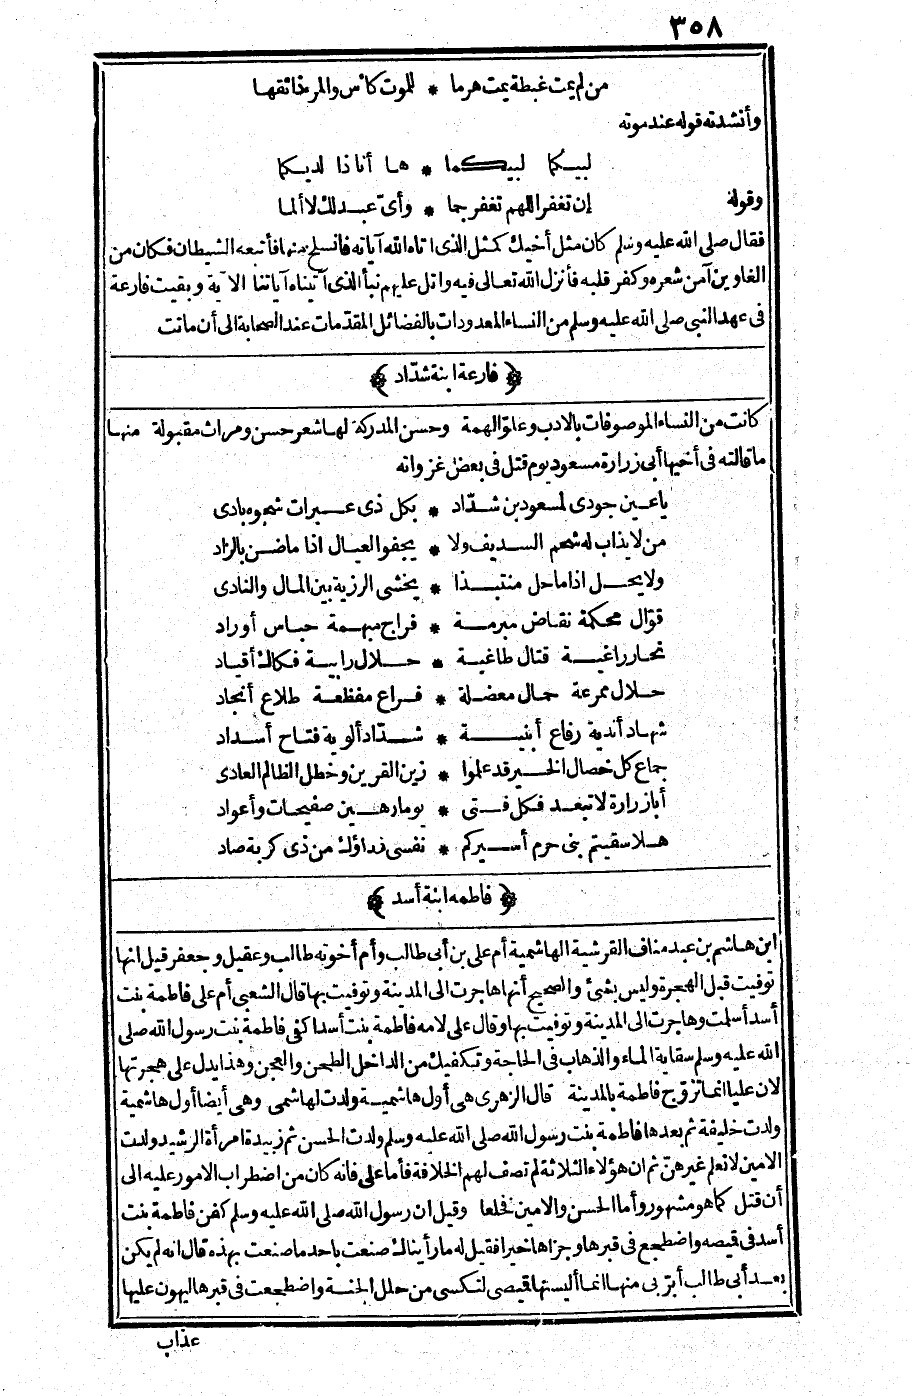 ٣٥٨
من لم يمت غبطة يمت هرما * للموت كأس والمرء ذائقها
وأنشدته قوله عند موته
لبيكما لبيكما * ها أنا ذا لديكما
وقوله إن تغفر اللهم تغفر جما * وأي عبد لك لا ألما
فقال صلى الله عليه وسلم كان مثل أخيك كمثل الذى اتاه الله آياته فانسلخ منها فأتبعه الشيطان فكان من
الغاوين آمن شعره وكفر قلبه فأنزل الله تعالى فيه واتل عليهم نبأ الذى آتيناه آياتنا الاية وبقيت فارعة
فى عهد النبى صلى الله عليه وسلم من النساء المعدودات بالفضائل المقدمات عند الصحابة الى أن ماتت
﴿ فارعة ابنة شدّاد ﴾
كانت من النساء الموصوفات بالادب وعلوّ الهمة وحسن المدركة لها شعر حسن ومراث مقبولة منها
ما قالته فى أخيها أبى زرارة مسعود يوم قتل فى بعض غزواته
يا عين جودى لمسعود بن شدّاد * بكل ذى عبرات شجوه بادى
من لا يذاب له شحم السديف ولا * يجفو العيال اذا ما ضن بالزاد
ولا يحل اذا ما حل منتبذا * يخشى الرزية بين المال والنادى
قوّال محكمة نقاض مبرمة * فراج مبهمة حباس أوراد
نحار راغية قتال طاغية * حلال رابية فكاك أقياد
حلال ممرعة حمال معضلة * قراع مفظعة طلاع أنجاد
شهاد أندية رفاع أبنية * شدّاد ألوية فتاح أسداد
جماع كل خصال الخير قد علموا * زين القرين وخطل الظالم العادى
أبا زرارة لا تبعد فكل فتى * يوما رهين صفيحات وأعواد
هلا سقيتم بنى جرم أسيركم * نفسى فداؤك من ذى كربة صاد
﴿ فاطمه ابنة أسد ﴾
ابن هاشم بن عبد مناف القرشية الهاشمية أم على بن أبى طالب وأم أخوته طالب وعقيل وجعفر قيل انها
توفيت قبل الهجرة وليس بشئ والصحيح أنها هاجرت الى المدينة وتوفيت بها قال الشعبى أم على فاطمة بنت
أسد أسلمت وهاجرت الى المدينة وتوفيت بها وقال على لامه فاطمة بنت أسد اكفى فاطمة بنت رسول الله صلى
الله عليه وسلم سقاية الماء والذهاب فى الحاجة وتكفيك من الداخل الطحن والعجن وهذا يدل على هجرتها
لان عليا انما تزوج فاطمة بالمدينة قال الزهرى هى أول هاشمية ولدت لهاشمى وهى أيضا أول هاشمية
ولدت خليفة ثم بعدها فاطمة بنت رسول الله صلى الله عليه وسلم ولدت الحسن ثم زبيدة امرأة الرشيد ولدت
الامين لا نعلم غيرهنّ ثم ان هؤلاء الثلاثة لم تصف لهم الخلافة فأما على فانه كان من اضطراب الامور عليه الى
أن قتل كما هو مشهور وأما الحسن والامين فخلعا وقيل ان رسول الله صلى الله عليه وسلم كفن فاطمة بنت
أسد فى قميصه واضطجع فى قبرها وجزاها خيرا فقيل له ما رأيناك صنعت باحد ما صنعت بهذه قال انه لم يكن
بعد أبى طالب أبرّ بى منها انما ألبستها قميصى لتكسى من حلل الجنة واضطجعت فى قبرها ليهون عليها
عذاب